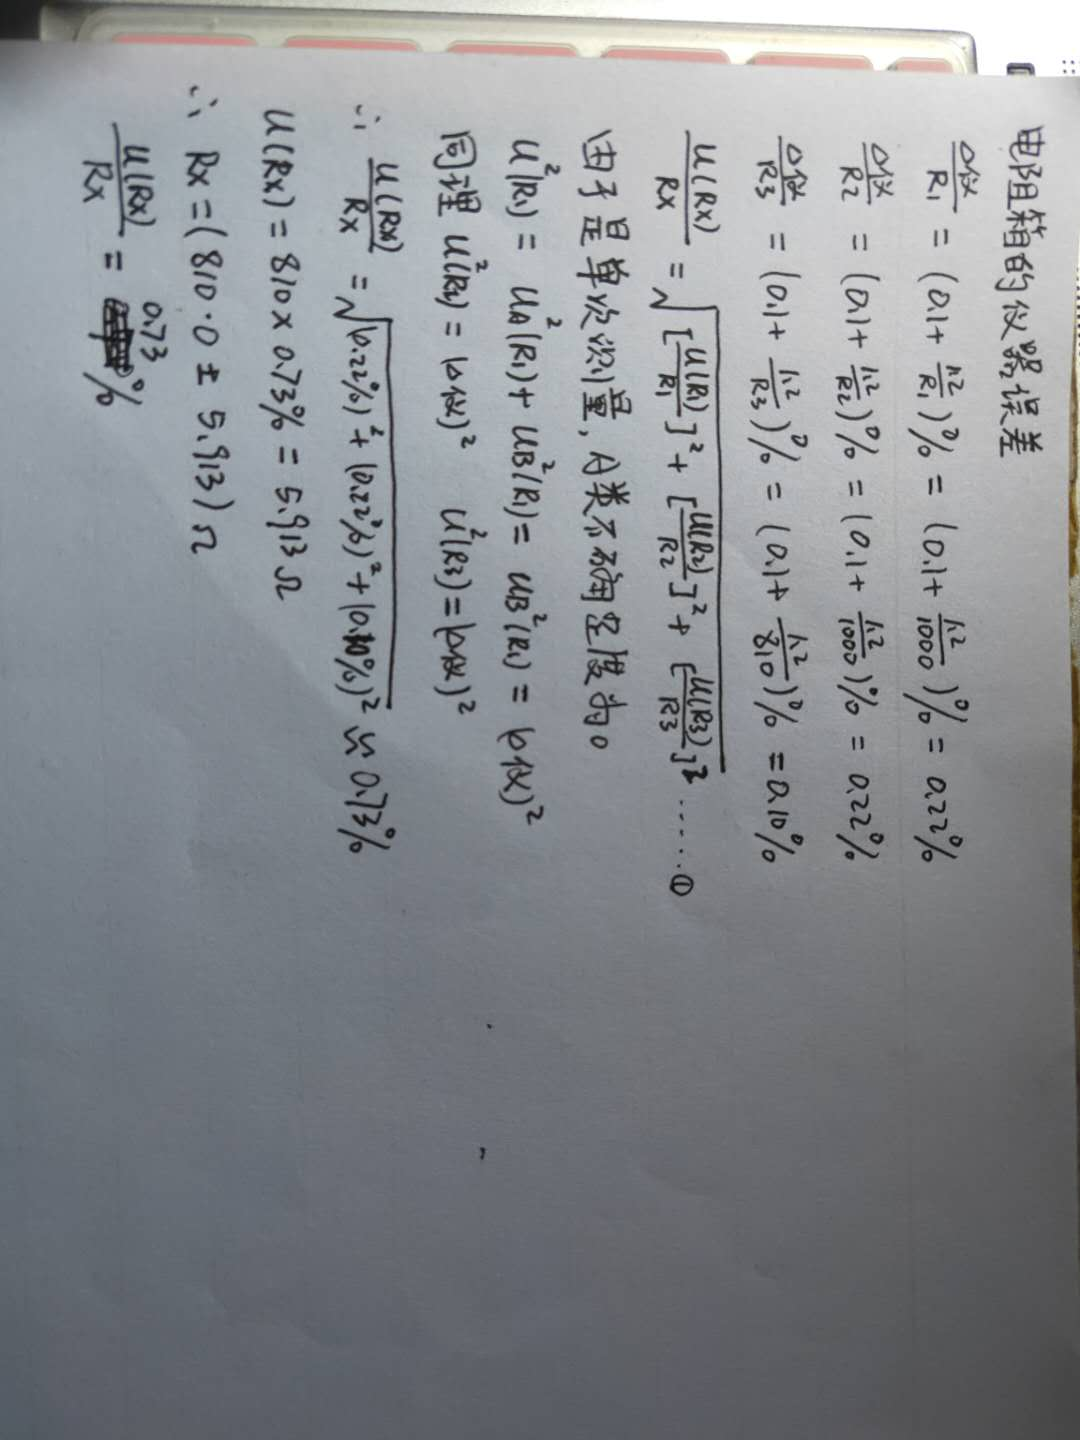 电阻箱的仪器误差
Δ仪/R1 = (0.1+1.2/R1)% = (0.1+1.2/1000)% = 0.22%
Δ仪/R2 = (0.1+1.2/R2)% = (0.1+1.2/1000)% = 0.22%
Δ仪/R3 = (0.1+1.2/R3)% = (0.1+1.2/810)% = 0.10%
u(Rx)/Rx = √[u(R1)/R1]²+[u(R2)/R2]²+[u(R3)/R3]² ······①
由于是单次测量，A类不确定度为0
u²(R1) = uA²(R1)+uB²(R1) = uB²(R1) = (Δ仪)²
同理 u²(R2) = (Δ仪)² u²(R3) = (Δ仪)²
∴ u(Rx)/Rx = √(0.22%)²+(0.22%)²+(0.10%)² ≈ 0.73%
u(Rx) = 810×0.73% = 5.913Ω
∴ Rx = (810.0±5.913)Ω
u(Rx)/Rx = 0.73%